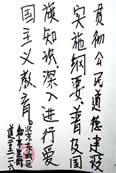 贯彻公民道德建设
实施纲要，普及国
旗知识，深入进行爱
国主义教育。